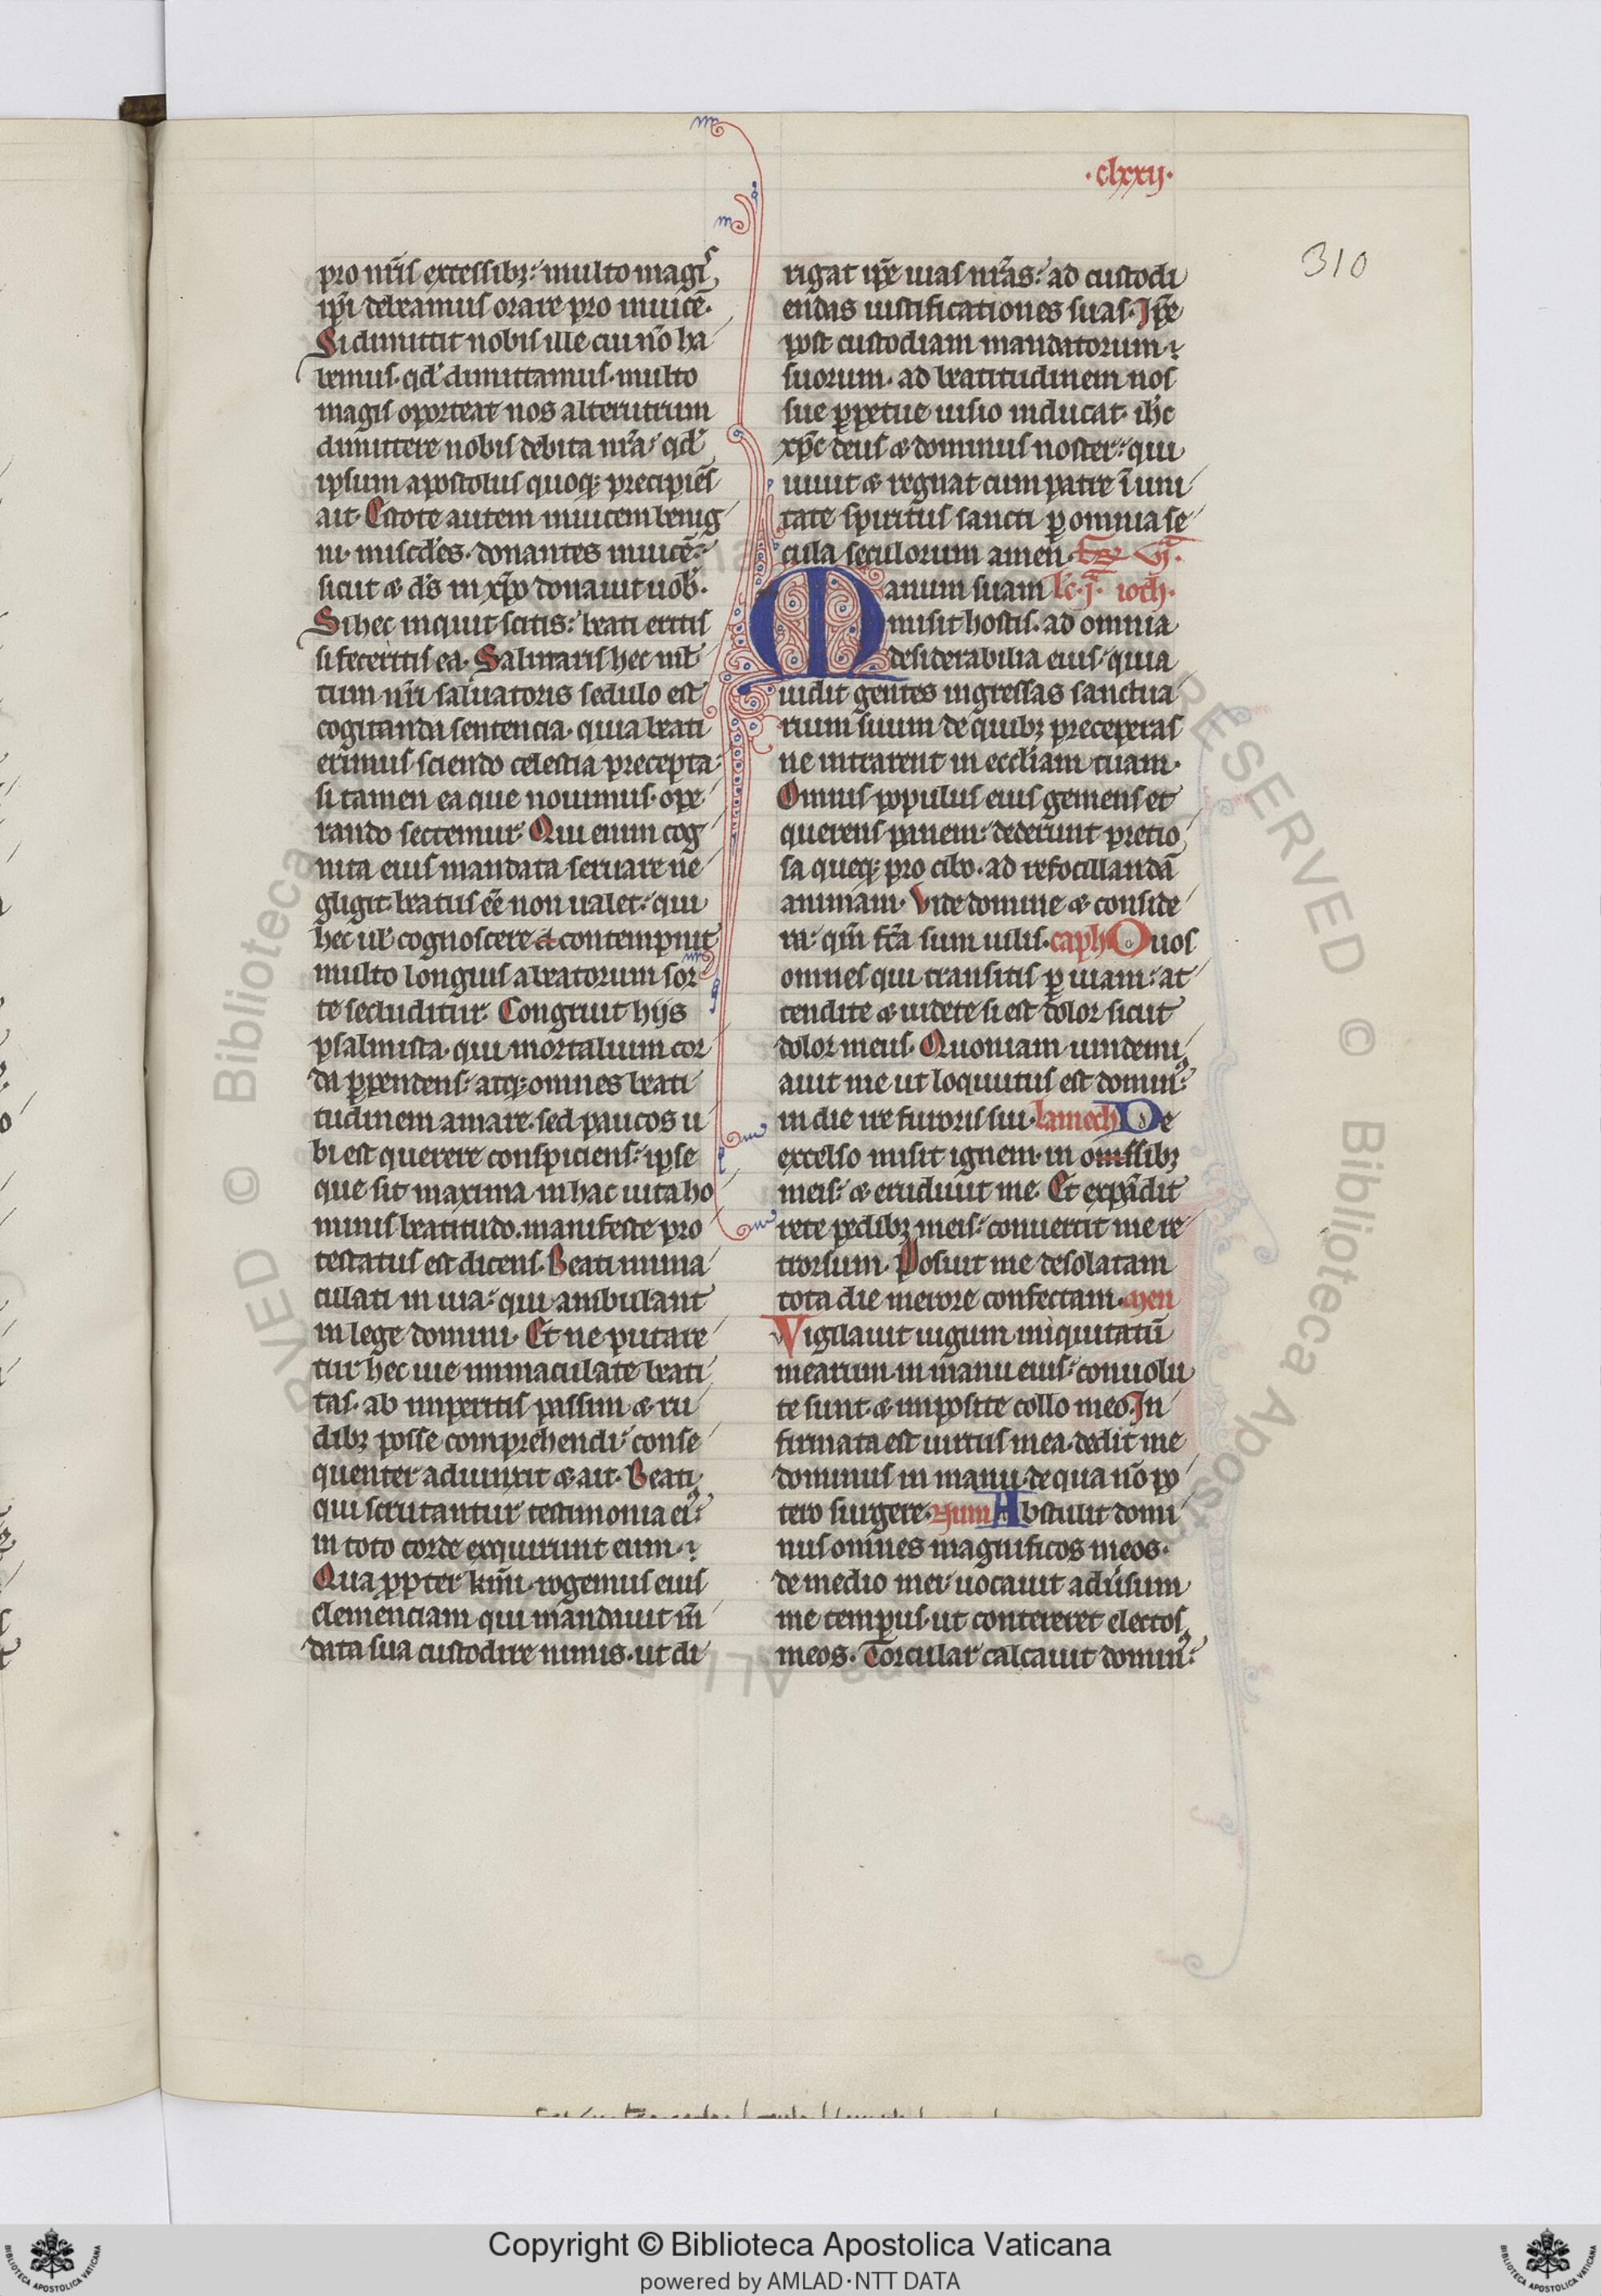 ·clxxij·
310
pro nr̄is excessibꝫ: multo magis
ip̄i debeamus orare pro inuicē·
Si dimittit nobis ille cui nō ha
bemus· qd̓ dimittamus· multo
magis oporteat nos alterutrum
dimittere nobis debita nr̄a· qd̓
ipsum apostolus quoqꝫ precipiēs
ait· Estote autem inuicem benig
ni· misc̄des· donantes inuicē:
sicut ⁊ d̄s in xp̄o donauit uob̓·
Si hec inquit scitis: beati eritis
si feceritis ea· Salutaris hec ml̓
tum nr̄i saluatoris sedulo est
cogitanda sentencia· quia beati
erimus sciendo celestia precepta:
si tamen ea que nouimus· ope
rando sectemur· Qui enim cog
nita eius mandata seruare ne
gligit· beatus eē non ualet: qui
hec ul̓ cognoscere contempnit
multo longius a beatorum sor
te secluditur· Congruit hijs
psalmista· qui mortalium cor
da ꝑpendens: atqꝫ omnes beati
tudinem amare· sed paucos u
bi est querere conspiciens: ipse
que sit maxima in hac uita ho
minis beatitudo· manifeste pro
testatus est dicens· Beati inma
culati in uia: qui ambulant
in lege domini· Et ne putare
tur hec uie inmaculate beati
tas· ab imperitis passim ⁊ ru
dibꝫ posse comprehendi· conse
quenter adiunxit ⁊ ait· Beati
qui scrutantur testimonia eiꝰ:
in toto corde exquirunt eum·
Qua ꝓpter km̄i· rogemus eius
clemenciam qui mandauit m̄
data sua custodire nimis· ut di
rigat ip̄e uias nr̄as: ad custodi
endas iustificationes suas· Ip̄e
post custodiam mandatorum
suorum· ad beatitudinem nos
sue ꝑpetue uisio inducat· ih̄c
xp̄c deus ⁊ dominus noster: qui
uiuit ⁊ regnat cum patre ī uni
tate spiritus sancti ꝑ omnia se
cula seculorum amen· vj·
Manum suam lc̄·j· ioth·
misit hostis· ad omnia
desiderabilia eius· quia
uidit gentes ingressas sanctua
rium suum· de quibꝫ preceperas
ne intrarent in eccl̓iam tuam·
Omnis populus eius gemens et
querens panem: dederunt pretio
sa queqꝫ pro cibo· ad refocillandā
animam· Vide domine ⁊ conside
ra· qm̄ fc̄a sum uilis· caph O uos
omnes qui transitis ꝑ uiam: at
tendite ⁊ uidete si est dolor sicut
dolor meus· Quoniam uindemi
auit me ut loquutus est dominꝰ:
in die ire furoris sui· lamech De
excelso misit ignem· in ossibꝫ
meis: ⁊ erudiuit me· Et expādit
rete pedibꝫ meis: conuertit me re
trorsum· Posuit me desolatam
tota die merore confectam· men
Vigilauit iugum iniquitatū
mearum· in manu eius: conuolu
te sunt ⁊ imposite collo meo· In
firmata est uirtus mea· dedit me
dominus in manu· de qua nō po
tero surgere· nun Abstulit domi
nus omnes magnificos meos·
de medio mei· uocauit adūsum
me tempus· ut contereret electos
meos· Torcular calcauit dominꝰ:
Copyright © Biblioteca Apostolica Vaticana
powered by AMLAD·NTT DATA